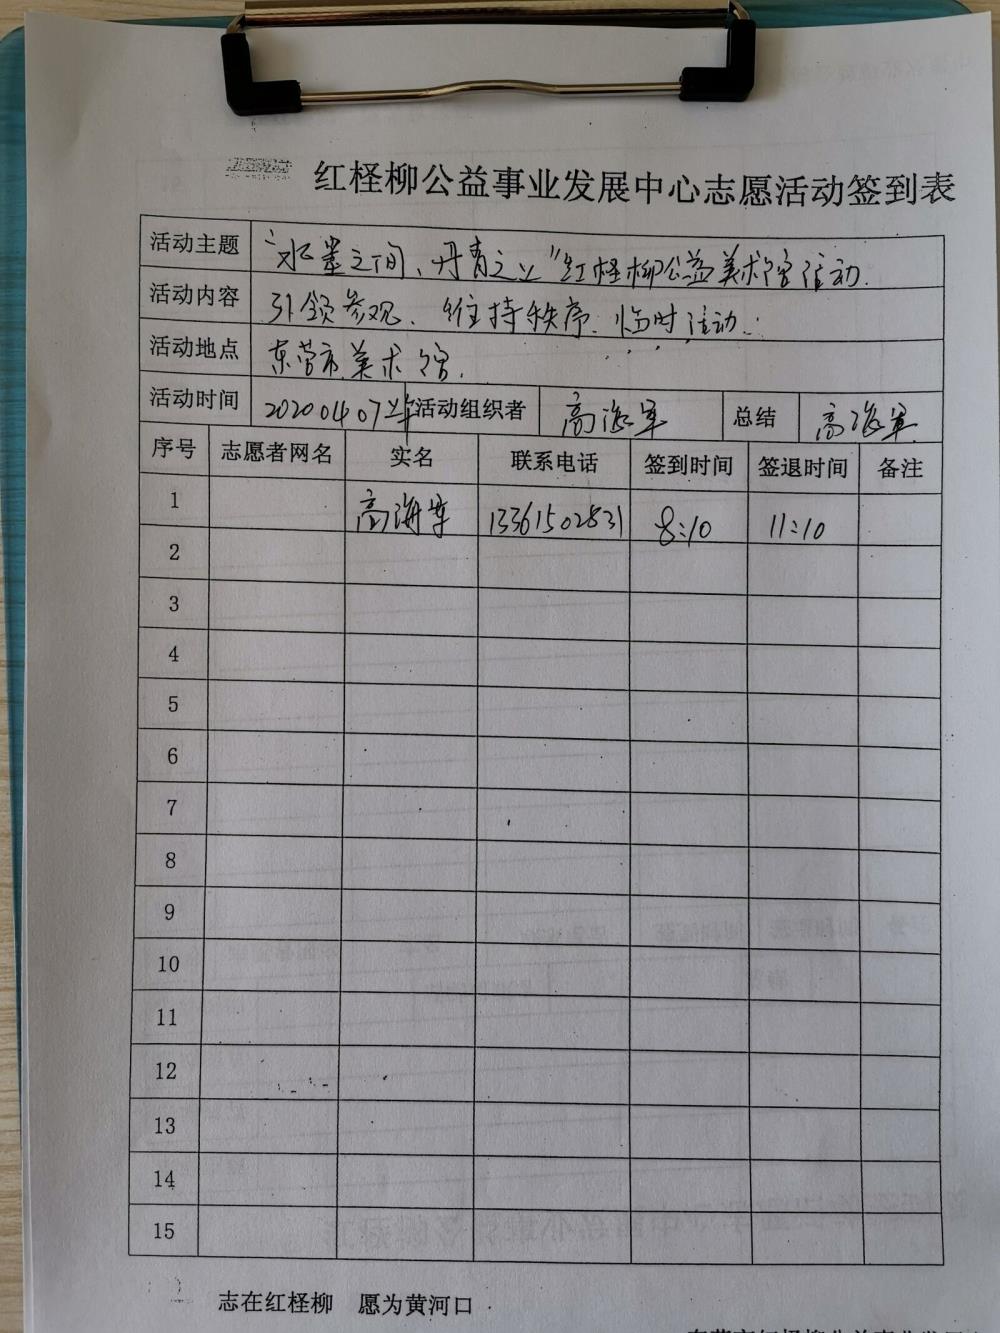 红柽柳公益事业发展中心志愿活动签到表
活动主题 “水墨之间、丹青之上”红柽柳公益美术馆活动.
活动内容 引领参观、维持秩序、临时活动.
活动地点 东营市美术馆.
活动时间 20200407上午 活动组织者 高海军 总结 高海军
序号 志愿者网名 实名 联系电话 签到时间 签退时间 备注
1 高海军 13361502831 8:10 11:10
2
3
4
5
6
7
8
9
10
11
12
13
14
15
志在红柽柳 愿为黄河口